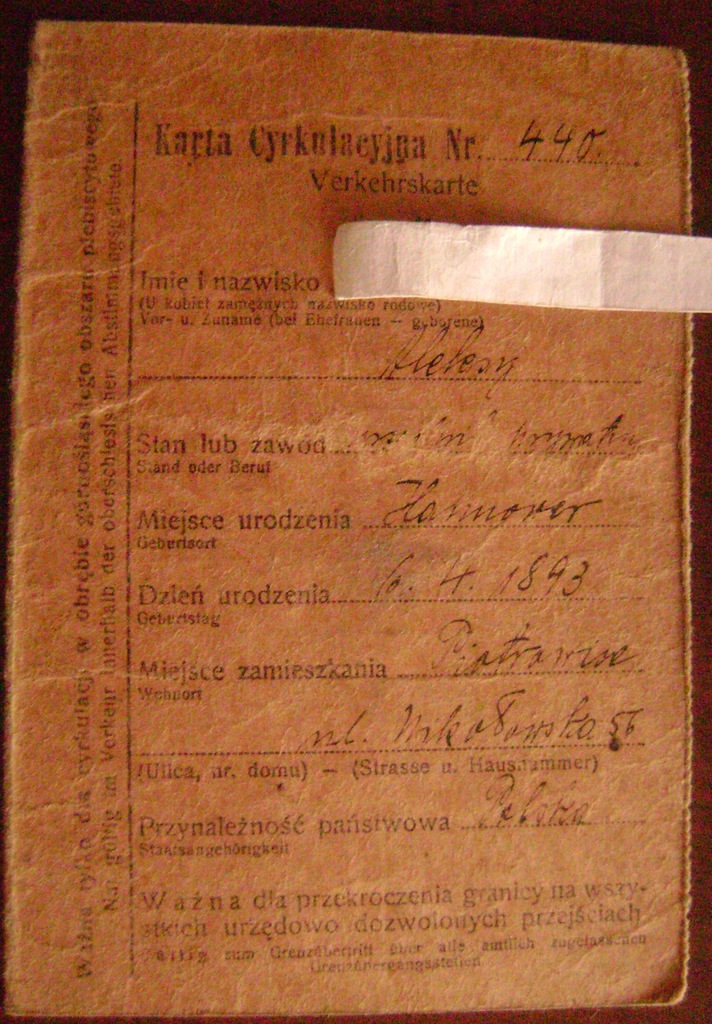 Karta Cyrkulacyjna Nr. 440.
Verkehrskarte
Imię i nazwisko
(U kobiet zamężnych nazwisko rodowe)
Vor- u. Zuname (bei Ehefrauen — geborene)
Stan lub zawód
Stand oder Beruf
Miejsce urodzenia Hannover
Geburtsort
Dzień urodzenia 6. 4. 1893
Geburtstag
Miejsce zamieszkania Piotrowice
Wohnort
ul. Mikołowska 56
(Ulica, nr. domu) — (Strasse u. Hausnummer)
Przynależność państwowa Polska
Staatsangehörigkeit
Ważna dla przekroczenia granicy na wszy-
stkich urzędowo dozwolonych przejściach
Gültig zum Grenzübertritt über alle amtlich zugelassenen
Grenzübergangsstellen
Ważna tylko dla cyrkulacji w obrębie górnośląskiego obszaru plebiscytowego
Nur gültig im Verkehr innerhalb der oberschlesischen Abstimmungsgebiete.